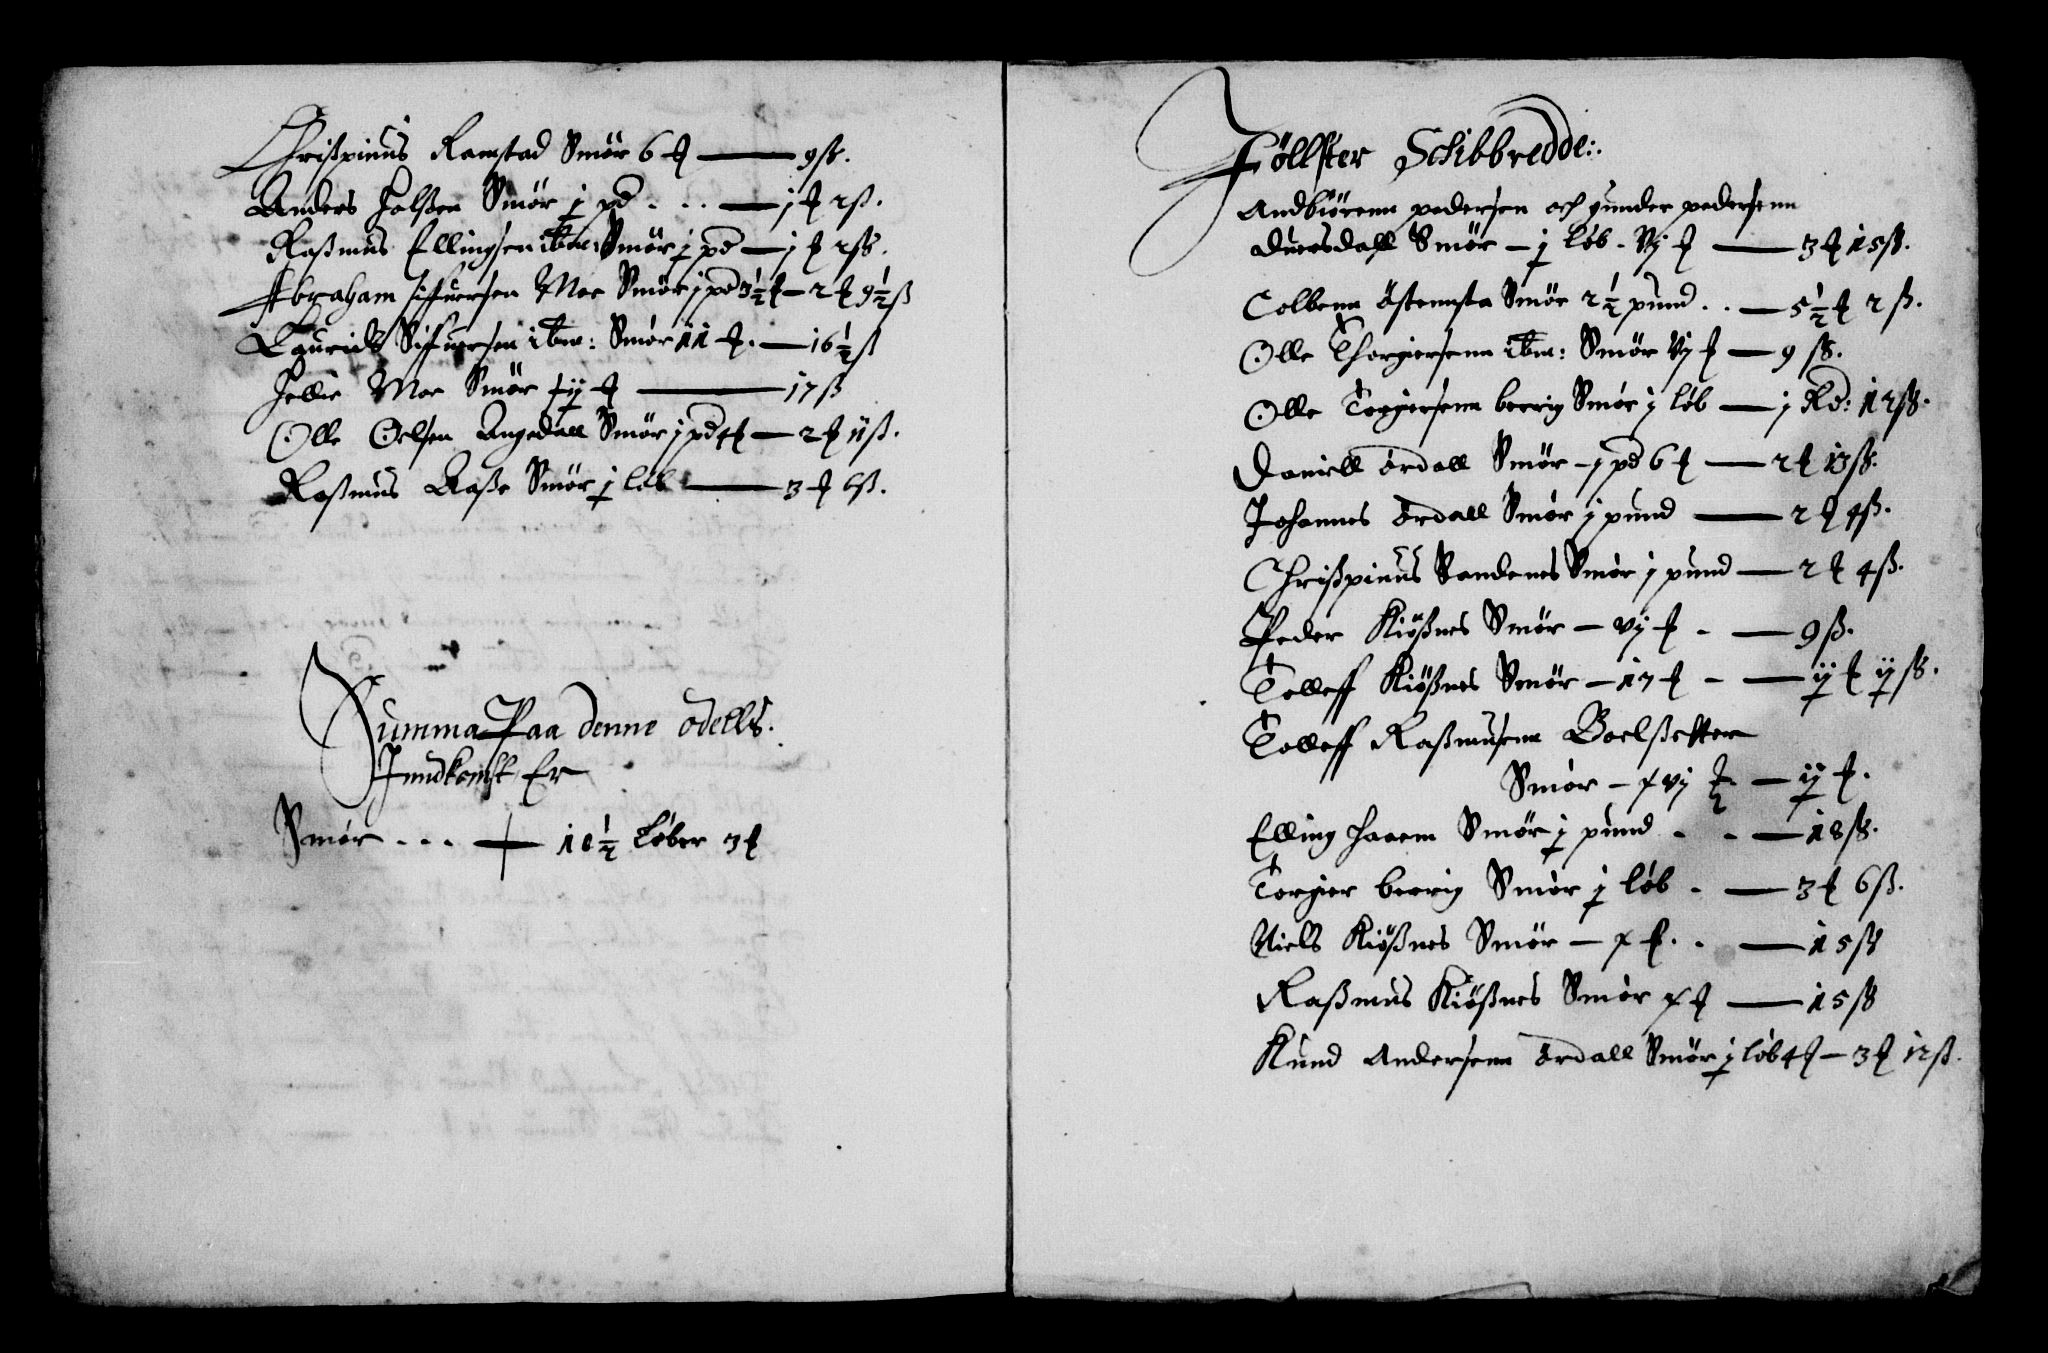 Chrißpinus Ramstad Smör 6 ℔ — 9 ß.
Anders Jolßen Smör j pd . . . — j ℔ 2 ß.
Raßmus Ellingsen ibm: Smör j pd — j ℔ 2 ß.
Abraham Siffuersen Moe Smör j pd 3½ ℔ — 2 ℔ 9½ ß
Laurids Siffuersen ibm: Smör 11 ℔. — 16½ ß
Moe Smör ℔ — 17 ß
Olle Oelsen Angedall Smör j pd 4 ℔ — 2 ℔ 11 ß.
Raßmus Aaße Smör j löb — 3 ℔ 6 ß.
Summa Paa denne odells.
Inndkomst Er
Smör . . . — 18½ Löber 3 ℔
Föllster Schibbredde:.
Andbiörenn pedersen och gunder pedersenn
duersdall Smör — j löb. vj ℔ — 3 ℔ 15 ß.
Colbenn östennsta Smör 2½ pund . . — 5½ ℔ 2 ß.
Olle Thorgiersenn ibm: Smör vj ℔ — 9 ß.
Olle Torgiersenn berrig Smör j löb — j Rd: 12 ß.
Daniell ördall Smör — j pd 6 ℔ — 2 ℔ 13 ß.
Johannes ördall Smör j pund — 2 ℔ 4 ß.
Chrißpinus Sandenes Smör j pund — 2 ℔ 4 ß.
Peder Kiößnes Smör — vj ℔ - — 9 ß.
Tolleff Kiößnes Smör — 17 ℔ - — ij ℔ ij ß.
Tolleff Raßmusenn Boelßetter
Smör — xvj ℔ — ij ℔.
Elling haaem Smör j pund - - — 18 ß.
Torgier berrig Smör j löb - — 3 ℔ 6 ß.
Niels Kiößnes Smör — x ℔. . — 15 ß
Raßmus Kiößnes Smör x ℔ — 15 ß
Knud Andersenn ördall Smör j löb 4 ℔ — 3 ℔ 12 ß.